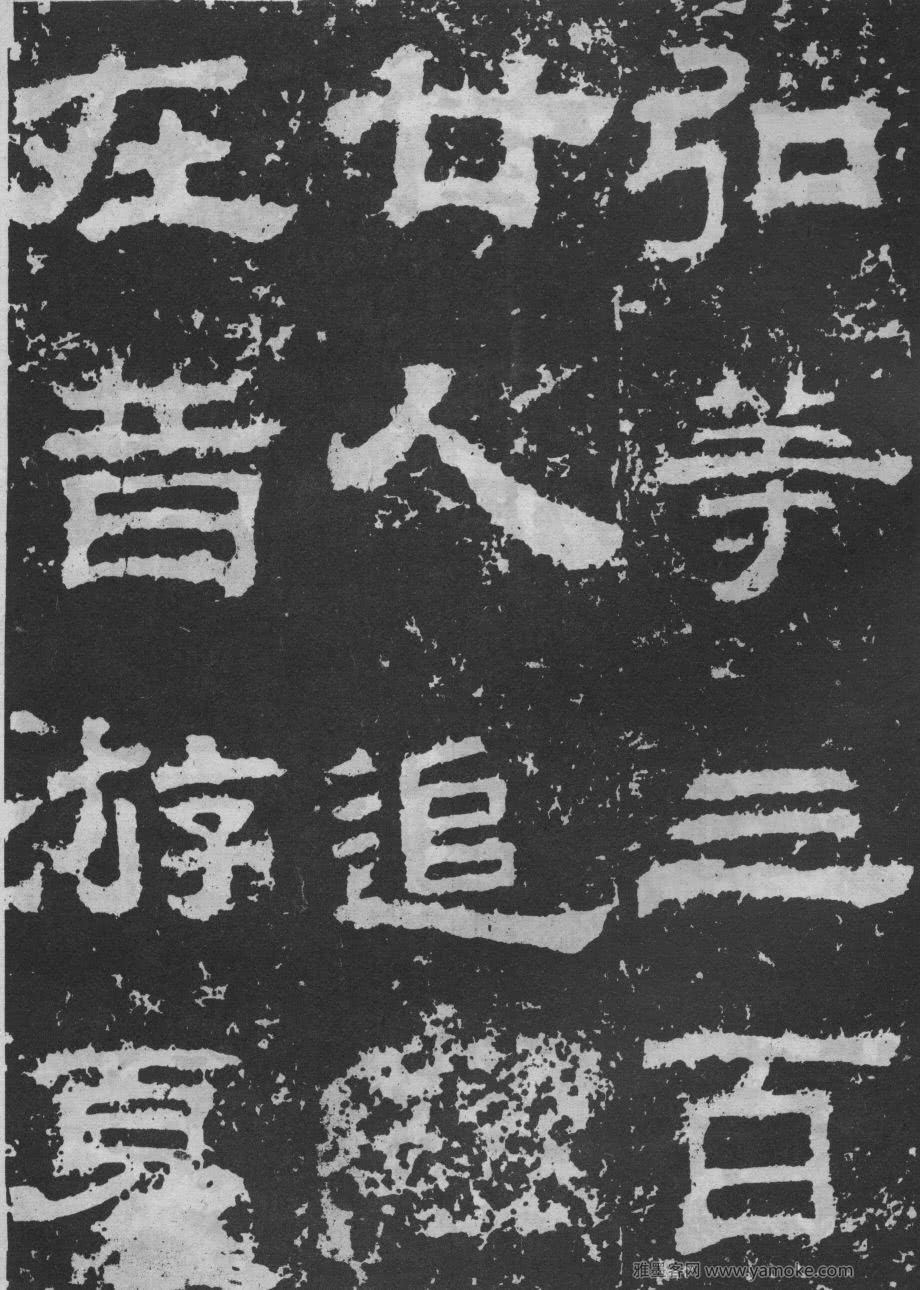 弘等三百
廿人追
在昔游夏
雅墨客网 www.yamoke.com